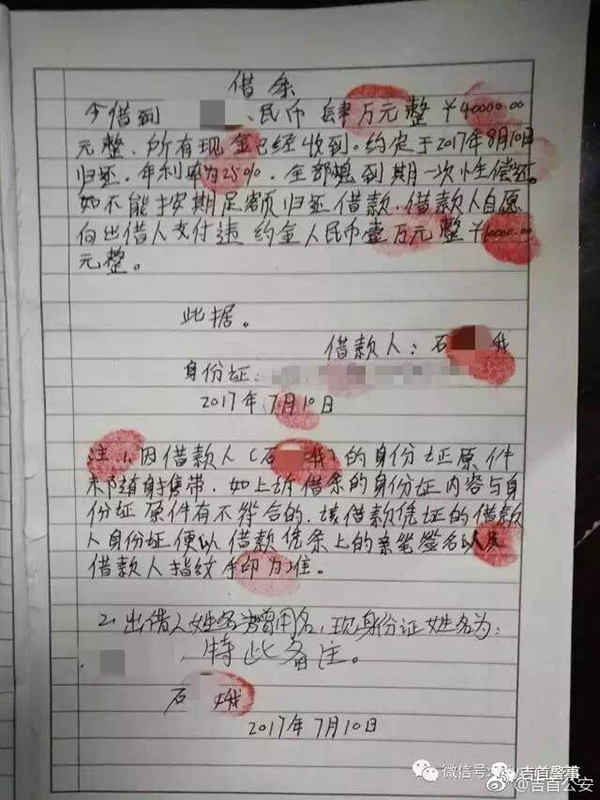 借条
今借到 民币肆万元整￥40000.00
元整、所有现金已经收到。约定于2017年8月10日
归还.年利率为25%.全部息到期一次性偿还。
如不能按期足额归还借款.借款人自愿
向出借人支付违约金人民币壹万元整￥10000.00
元整。
此据。
借款人：石 娥
身份证：
2017年7月10日
注.1.因借款人（石 娥）的身份证原件
未随身携带．如上诉借条的身份证内容与身
份证原件有不符合的．该借款凭证的借款
人身份证便以借款凭条上的亲笔签名以及
借款人指纹手印为准。
2.出借人姓名为曾用名.现身份证姓名为：
特此备注。
石 娥
2017年7月10日
微信号: 吉首警事
@吉首公安